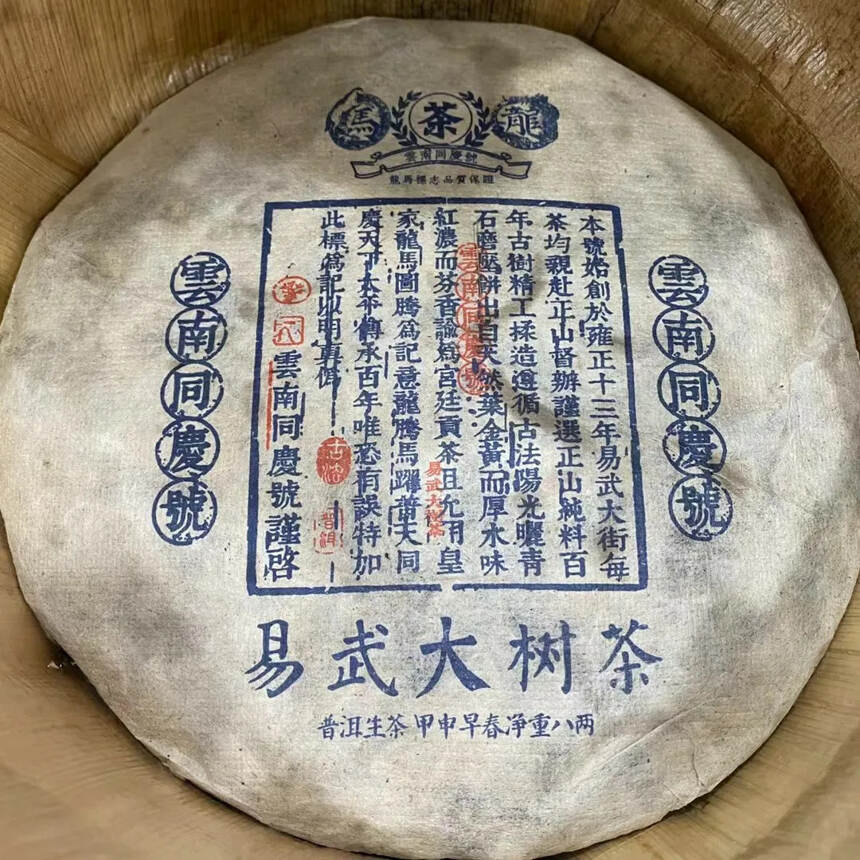 馬 茶 龍
雲南同慶號
龍馬標志品質保證
本號始創於雍正十三年易武大街每
茶均親赴正山督辦謹選正山純料百
年古樹精工揉造遵循古法陽光曬青
石磨壓餅出自天然葉金黃而厚水味
紅濃而芬香諭爲宮廷貢茶且允用皇
家龍馬圖騰爲記意龍騰馬躍莆天同
慶天下太平傳承百年唯恐有誤特加
此標爲記以明真僞
雲南同慶號謹啓
雲南同慶號
易武大樹茶
普洱
雲南同慶號
雲南同慶號
易武大树茶
普洱生茶 甲申早春净重八两